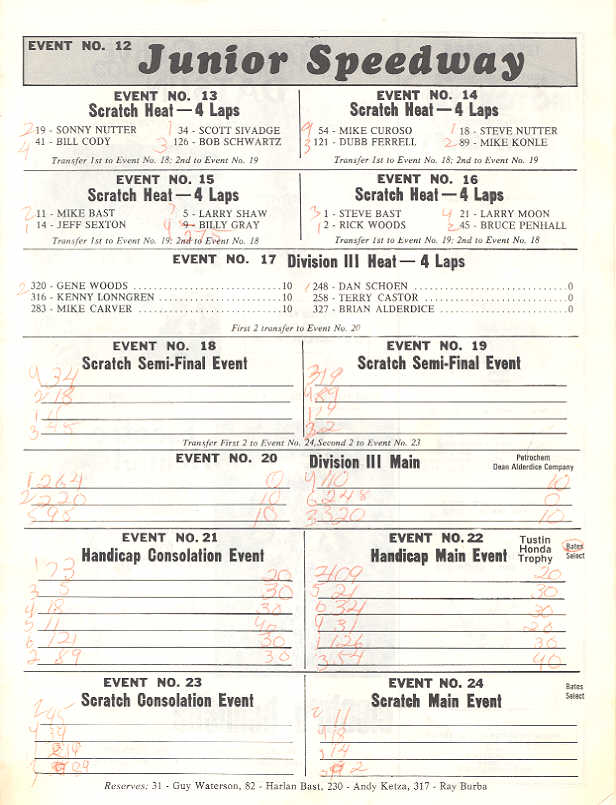 EVENT NO. 12 Junior Speedway
EVENT NO. 13
Scratch Heat — 4 Laps
2 19 - SONNY NUTTER 1 34 - SCOTT SIVADGE
4 41 - BILL CODY 3 126 - BOB SCHWARTZ
Transfer 1st to Event No. 18; 2nd to Event No. 19
EVENT NO. 14
Scratch Heat — 4 Laps
54 - MIKE CUROSO 1 18 - STEVE NUTTER
3 121 - DUBB FERRELL 2 89 - MIKE KONLE
Transfer 1st to Event No. 18; 2nd to Event No. 19
EVENT NO. 15
Scratch Heat — 4 Laps
2 11 - MIKE BAST 3 5 - LARRY SHAW
1 14 - JEFF SEXTON 4 9 - BILLY GRAY
275
Transfer 1st to Event No. 19; 2nd to Event No. 18
EVENT NO. 16
Scratch Heat — 4 Laps
3 1 - STEVE BAST 4 21 - LARRY MOON
1 2 - RICK WOODS 2 45 - BRUCE PENHALL
Transfer 1st to Event No. 19; 2nd to Event No. 18
EVENT NO. 17 Division III Heat — 4 Laps
2 320 - GENE WOODS ........................10 1 248 - DAN SCHOEN ........................0
316 - KENNY LONNGREN ........................10 258 - TERRY CASTOR ........................0
283 - MIKE CARVER ........................10 327 - BRIAN ALDERDICE ........................0
First 2 transfer to Event No. 20
EVENT NO. 18
Scratch Semi-Final Event
4 34
2 18
1 11
3 45
EVENT NO. 19
Scratch Semi-Final Event
3 19
4 89
1 14
2
Transfer First 2 to Event No. 24, Second 2 to Event No. 23
EVENT NO. 20 Division III Main Petrochem
Dean Alderdice Company
1 264 0 4 110 10
2 220 10 6 248 0
5 95 10 3 320 10
EVENT NO. 21
Handicap Consolation Event
1 73 20
3 5 30
4 18 30
5 11 40
6 121 30
2 89 30
EVENT NO. 22
Handicap Main Event
Tustin
Honda
Trophy
Bates
Select
2 109 20
5 21 30
6 34 30
4 31 20
1 126 30
3 54 40
EVENT NO. 23
Scratch Consolation Event
2 45
4 34
89
EVENT NO. 24
Scratch Main Event
Bates
Select
2 11
18
14
2
Reserves: 31 - Guy Waterson, 82 - Harlan Bast, 230 - Andy Ketza, 317 - Ray Burba